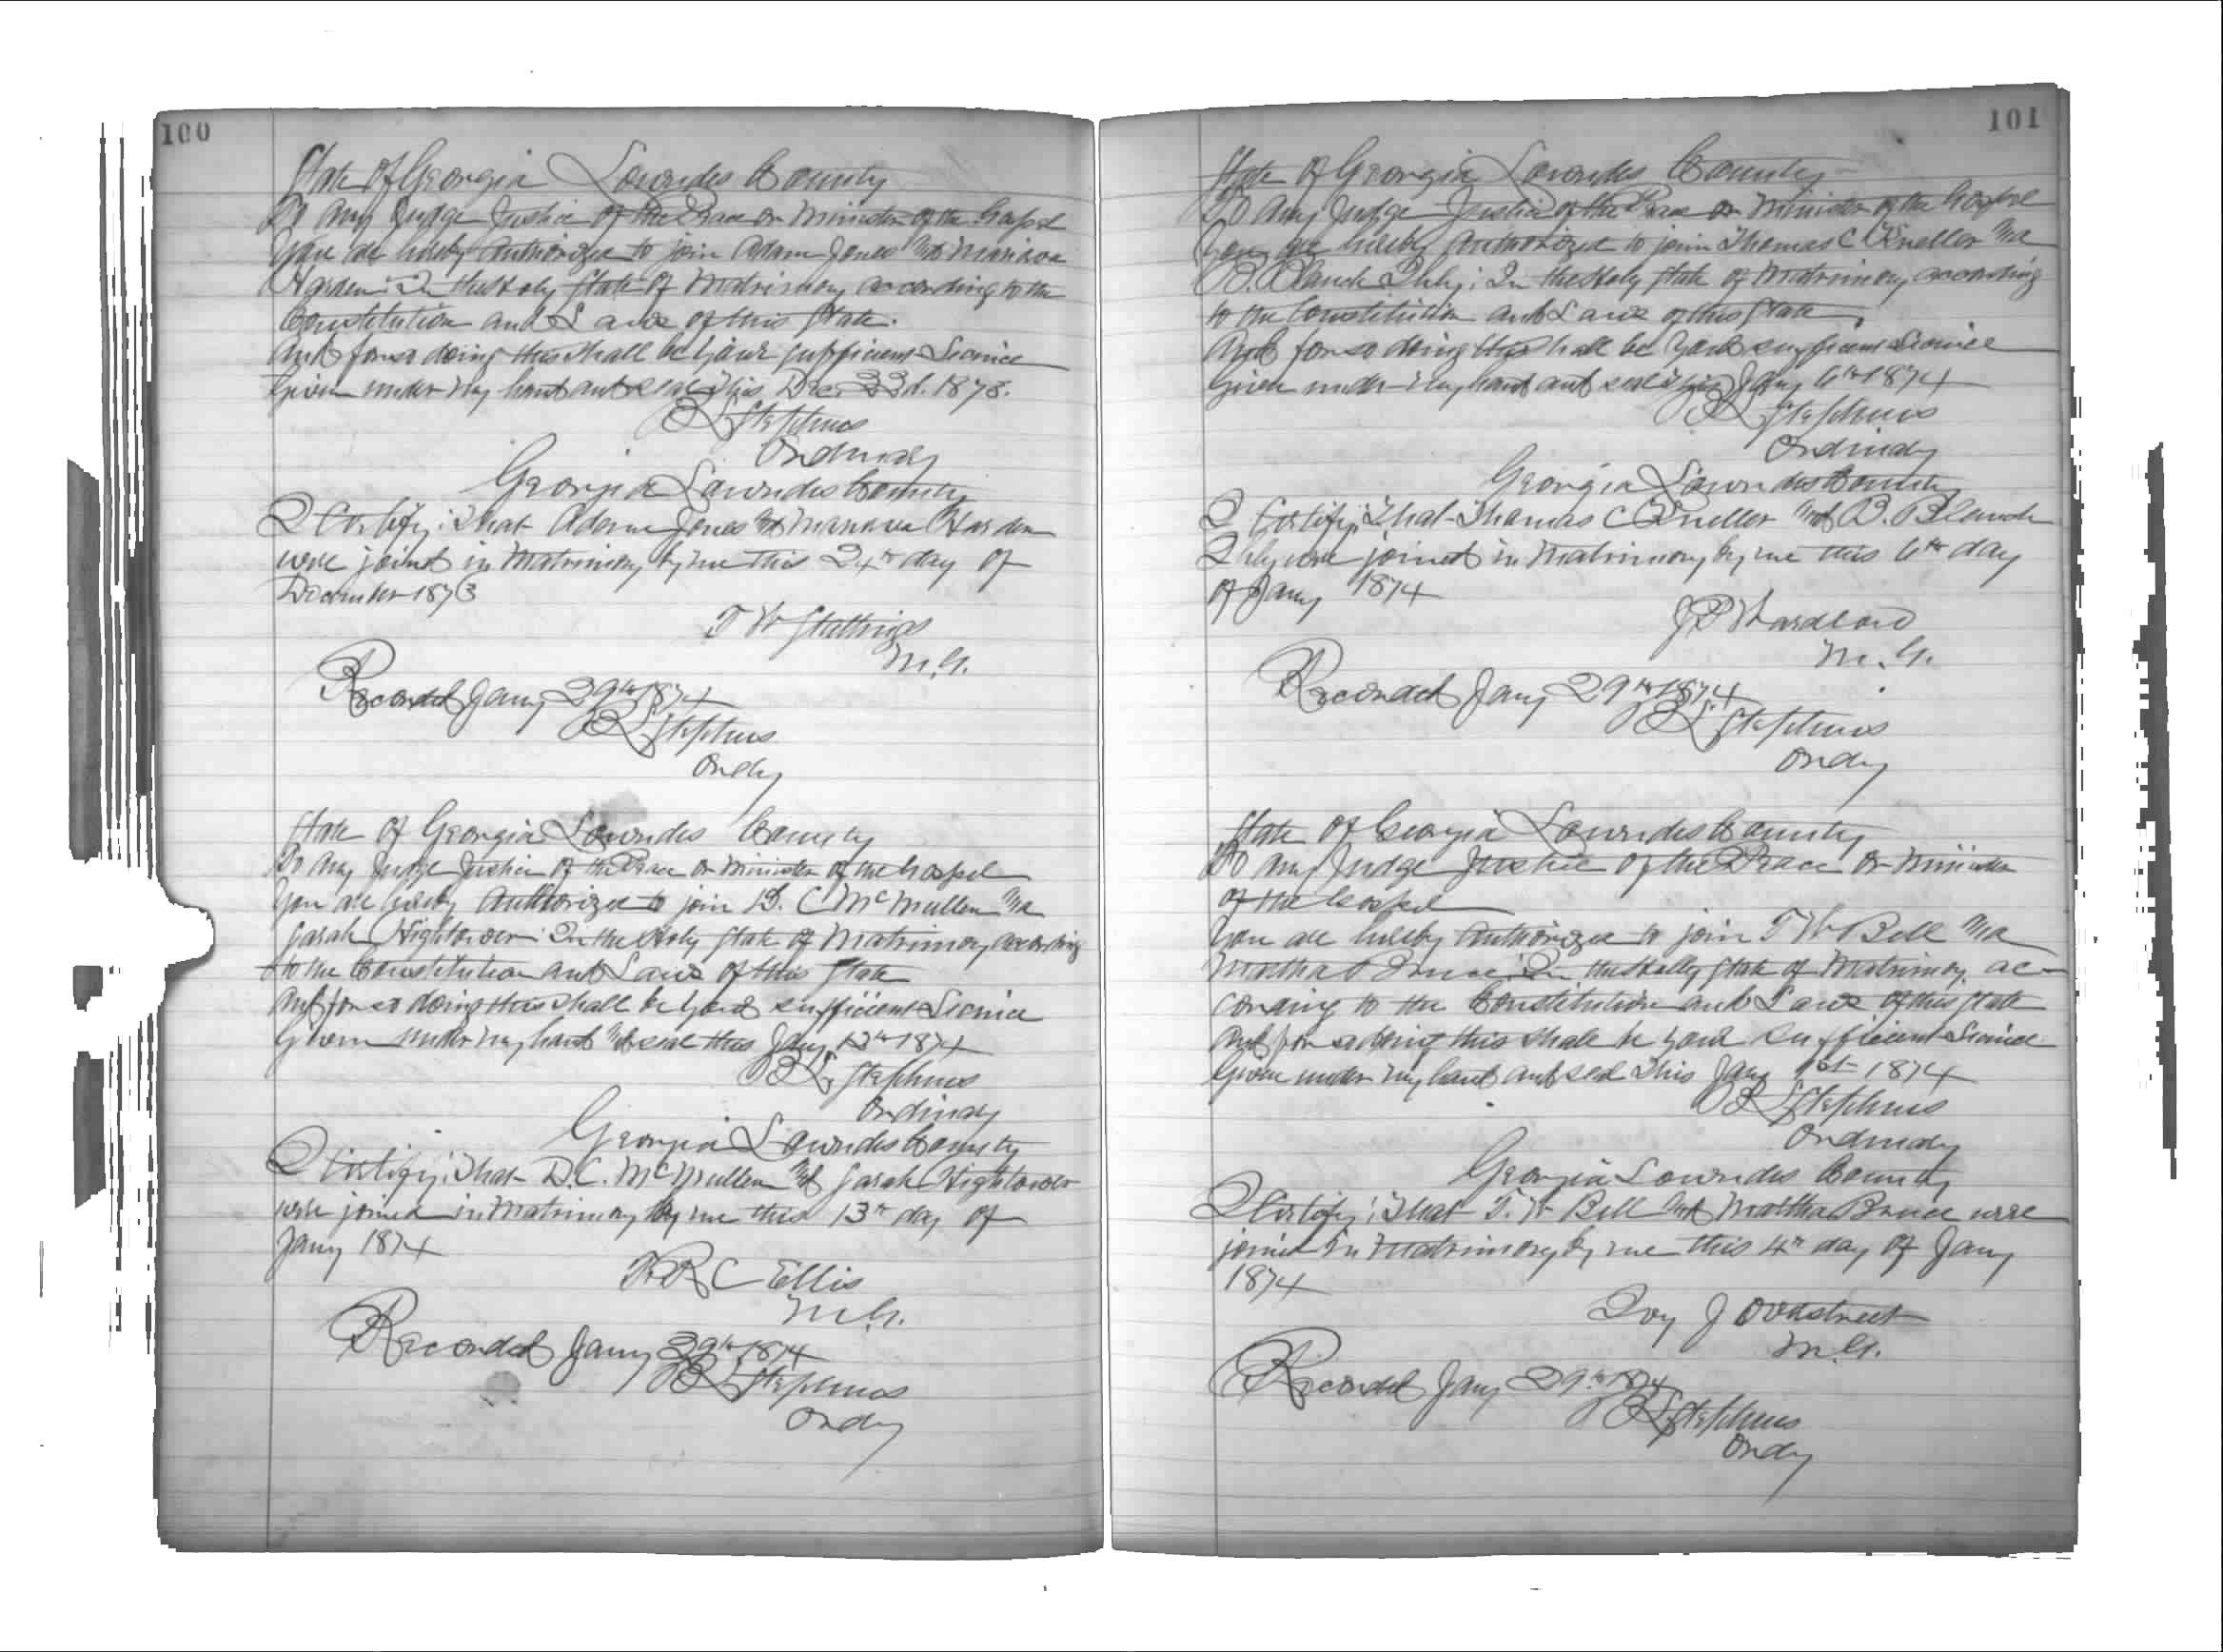 100
State of Georgia Lowndes County
To Any Judge Justice of the Peace or Minister of the Gospel
You are hereby Authorized to join Adam Jones And
Harden: In the Holy State of Matrimony according to the
Constitution and Laws of this State.
And for so doing this shall be your sufficient License
Given under my hand and seal This Dec. 23d. 1873.
Stephens
Ordinary
Georgia Lowndes County
I Certify: That Adam Jones and Harden
were joined in Matrimony by me this 24th day of
December 1873
T W
M.G.
Recorded Jany 29th 1874
Stephens
Ordy
State of Georgia Lowndes County
To Any Judge Justice of the Peace or Minister of the Gospel
You are hereby Authorized to join D. C McMullen And
Sarah Hightower: In the Holy State of Matrimony according
to the Constitution and Laws of this State
And for so doing this shall be your sufficient License
Given under my hand and seal this Jany 13th 1874
Stephens
Ordinary
Georgia Lowndes County
I Certify: That D.C. McMullen and Sarah Hightower
were joined in Matrimony by me this 13th day of
Jany 1874
R C Ellis
M.G.
Recorded Jany 29th 1874
Stephens
Ordy
101
State of Georgia Lowndes County
To Any Judge Justice of the Peace or Minister of the Gospel
You are hereby Authorized to join Thomas C And
B. Blanch: In the Holy State of Matrimony according
to the Constitution and Laws of this State
And for so doing this shall be your sufficient License
Given under my hand and seal this Jany 6th 1874
Stephens
Ordinary
Georgia Lowndes County
I Certify: That Thomas C and B. Blanch
were joined in Matrimony by me this 6th day
of Jany 1874
J P Wardlaw
M.G.
Recorded Jany 29th 1874
Stephens
Ordy
State of Georgia Lowndes County
To Any Judge Justice of the Peace or Minister
of the Gospel
You are hereby Authorized to join T W Bell And
Martha Bruce: In the Holly State of Matrimony ac-
cording to the Constitution and Laws of this State
And for so doing this shall be your sufficient License
Given under my hand and seal This Jany 1st 1874
Stephens
Ordinary
Georgia Lowndes County
I Certify: That T. W Bell and Martha Bruce were
joined in Matrimony by me this 4th day of Jany
1874
Ivy J Overstreet
M.G.
Recorded Jany 29th 1874
Stephens
Ordy